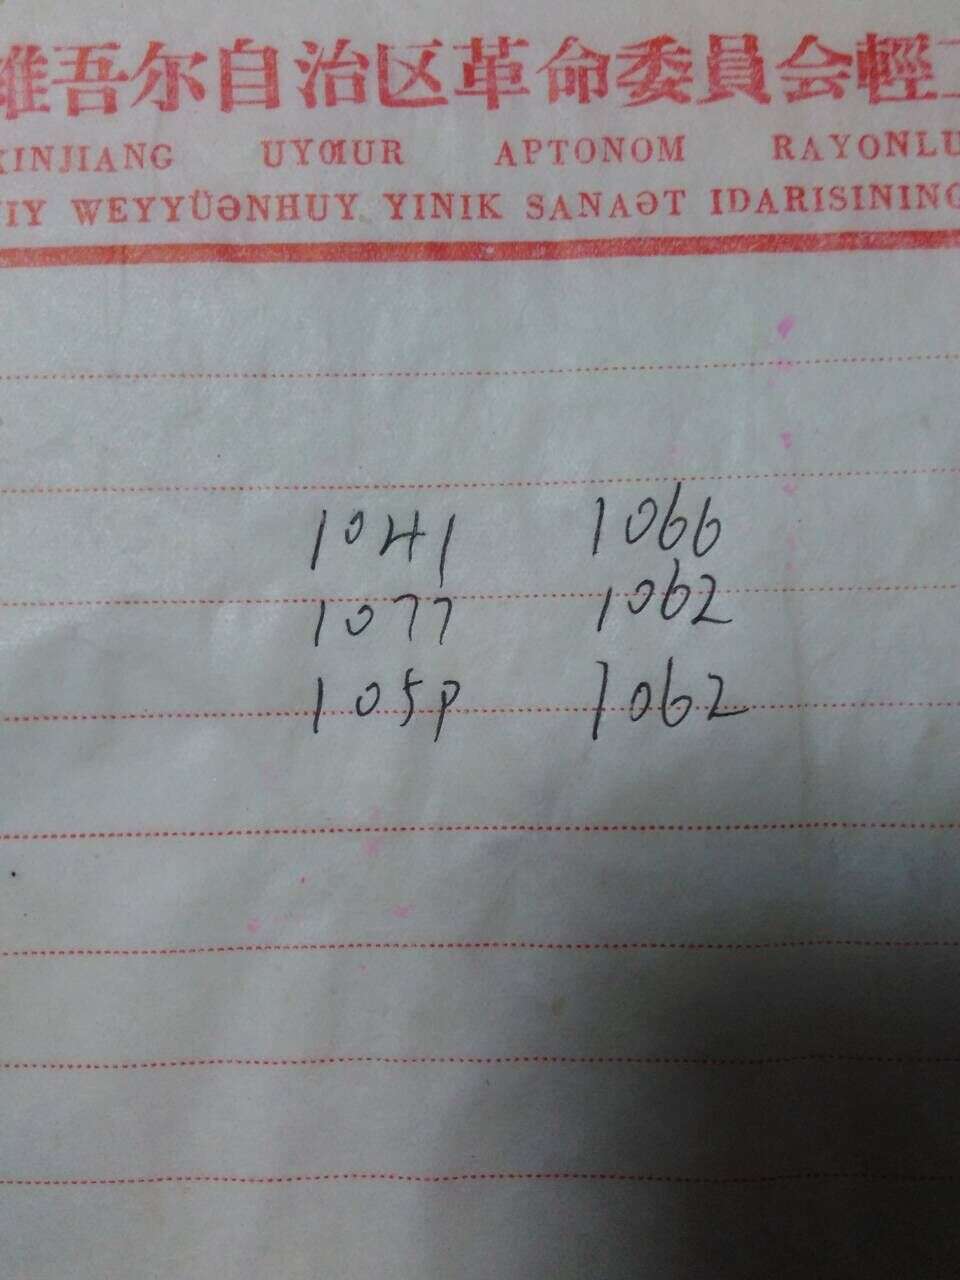 維吾尔自治区革命委員会輕工
XINJIANG UYƢUR APTONOM RAYONLU
IY WEYYÜƏNHUY YINIK SANAƏT IDARISINING
1041 1066
1077 1062
1059 1062